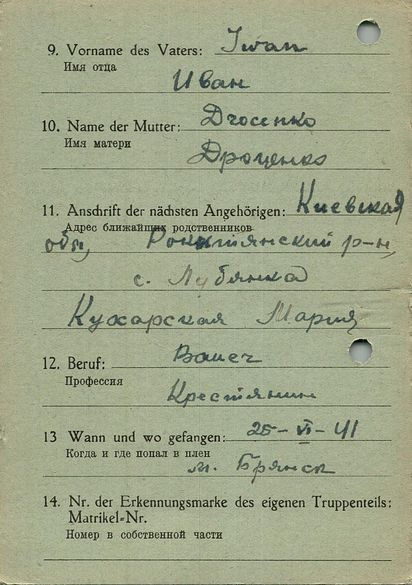 9. Vorname des Vaters: Iwan
Имя отца
Иван
10. Name der Mutter:
Имя матери
Дроценко
11. Anschrift der nächsten Angehörigen: Киевская
Адрес ближайших родственников
обл, Рокитянский р-н,
с. Лубянка
Кухарская Мария
12. Beruf:
Профессия
Крестянин
13 Wann und wo gefangen: 25-VI-41
Когда и где попал в плен
м. Брянск
14. Nr. der Erkennungsmarke des eigenen Truppenteils:
Matrikel-Nr.
Номер в собственной части